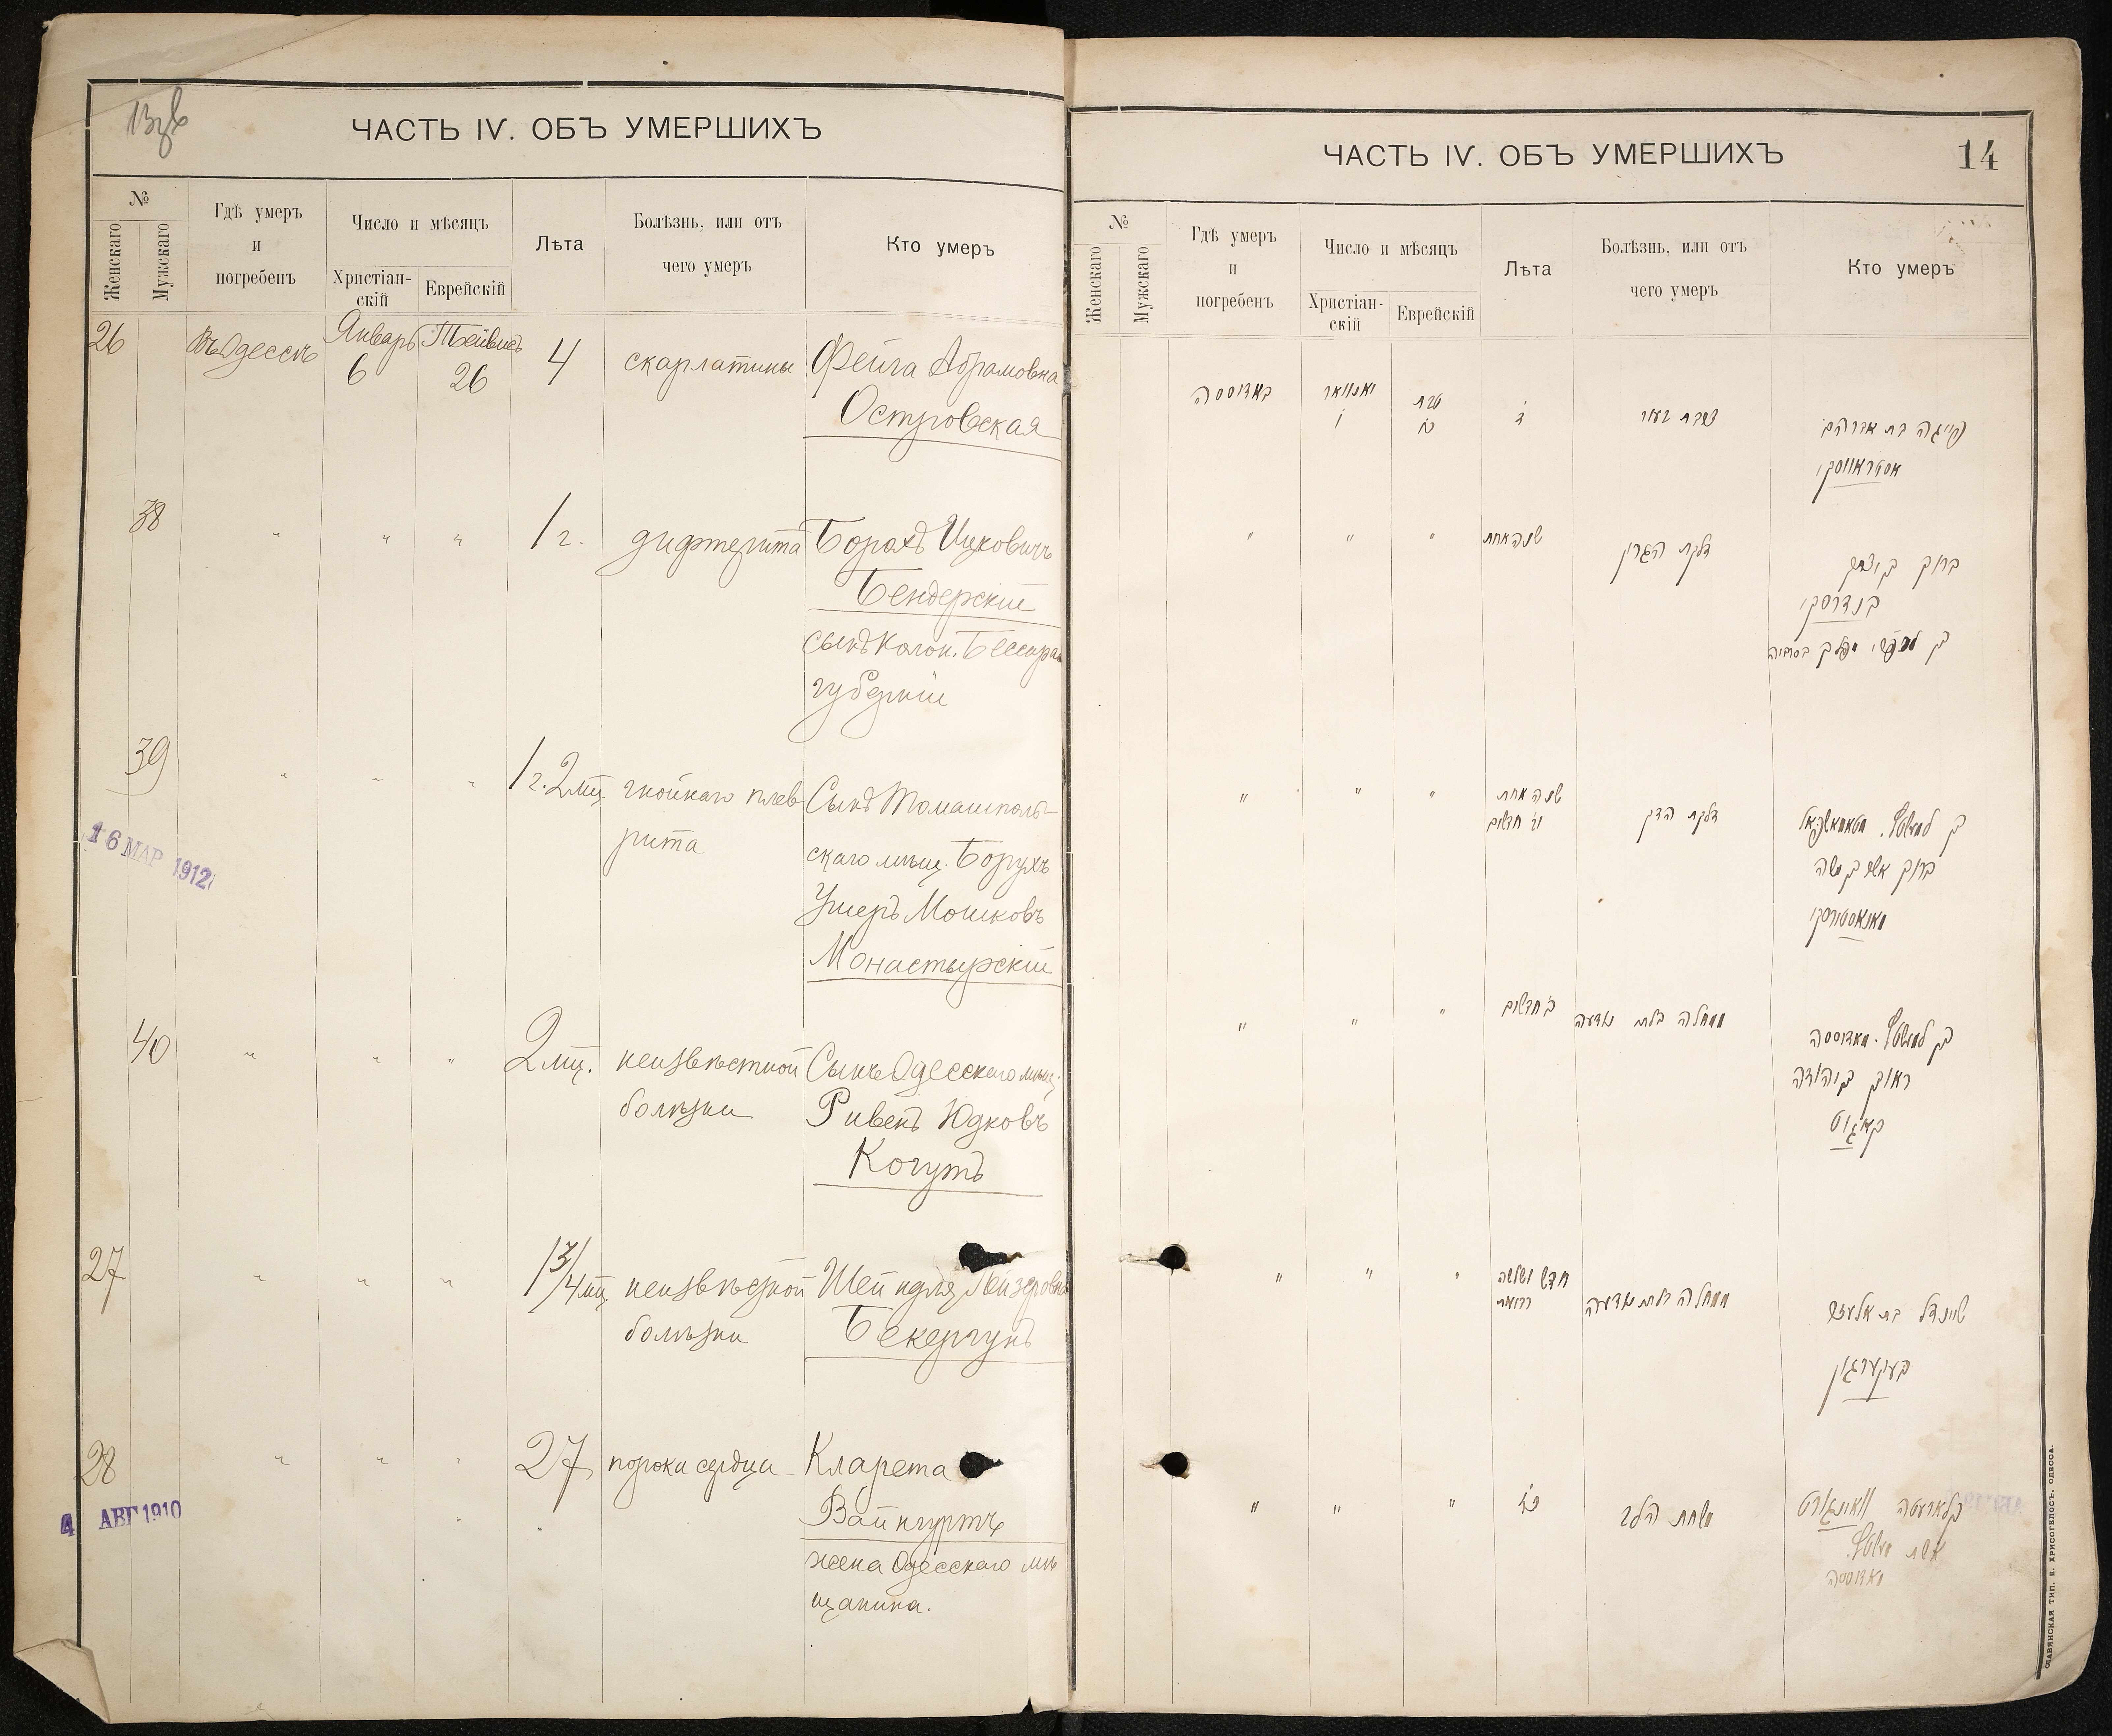 ЧАСТЬ IV. ОБЪ УМЕРШИХЪ
№
Женскаго
Мужскаго
Гдѣ умеръ
и
погребенъ
Число и мѣсяцъ
Христіан-
скій
Еврейскій
Лѣта
Болѣзнь, или отъ
чего умеръ
Кто умеръ
26 Въ Одессѣ Январь 6 Тейвисъ 26 4 скарлатины Фейга Абрамовна
Островская
38 " " " 1 г. дифтерита Борохъ Ицковичъ
Бендерскій
сынъ колон. Бессараб
губерніи
39 " " " 1 г. 2 мц. гнойнаго плев-
рита
Сынъ Томашполь-
скаго мѣщ. Борухъ
Ушеръ Мошковъ
Монастырскій
16 МАР 1912
40 " " " 2 мц. неизвѣстной
болѣзни
Сынъ Одесскаго мѣщ.
Ривенъ Юдковъ
Когутъ
27 " " " 1 3/4 мц. неизвѣстной
болѣзни
Шейндля Лейзеровна
Бекергунъ
28 " " " 27 порока сердца Кларета
Вайнгуртъ
жена Одесскаго мѣ
щанина.
4 АВГ 1910
ЧАСТЬ IV. ОБЪ УМЕРШИХЪ
14
№
Женскаго
Мужскаго
Гдѣ умеръ
и
погребенъ
Число и мѣсяцъ
Христіан-
скій
Еврейскій
Лѣта
Болѣзнь, или отъ
чего умеръ
Кто умеръ
באדוססה יאנואר ו טבת כו ד פייגה בת אברהם
אסטראווסקי
" " " שנה אחת דלקת הגרון ברוך בן יצחק
בנדרסקי
" " " שנה אחת
וב חדשים
דלקת הדק
ברוך אשר בן משה
מאנאסטירסקי
" " " ב חדשים מחלה בלתי נודעה
ראובן בן יהודה
קאגוט
" " " חדש ושלשה
רביעית
מחלה בלתי נודעה שיינדל בת אליעזר
בעקערגון
" " " כז קלארעטה וואינגורט
אשת
מאדוססה
СЛАВЯНСКАЯ ТИП. Е. ХРИСОГЕЛОСЪ, ОДЕССА.